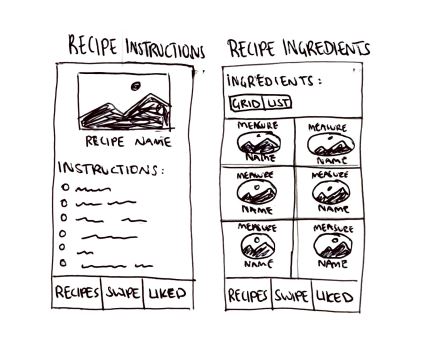 RECIPE INSTRUCTIONS
RECIPE NAME
INSTRUCTIONS:
RECIPES SWIPE LIKED
RECIPE INGREDIENTS
INGREDIENTS:
GRID LIST
MEASURE MEASURE
NAME NAME
MEASURE MEASURE
NAME NAME
MEASURE MEASURE
NAME NAME
RECIPES SWIPE LIKED